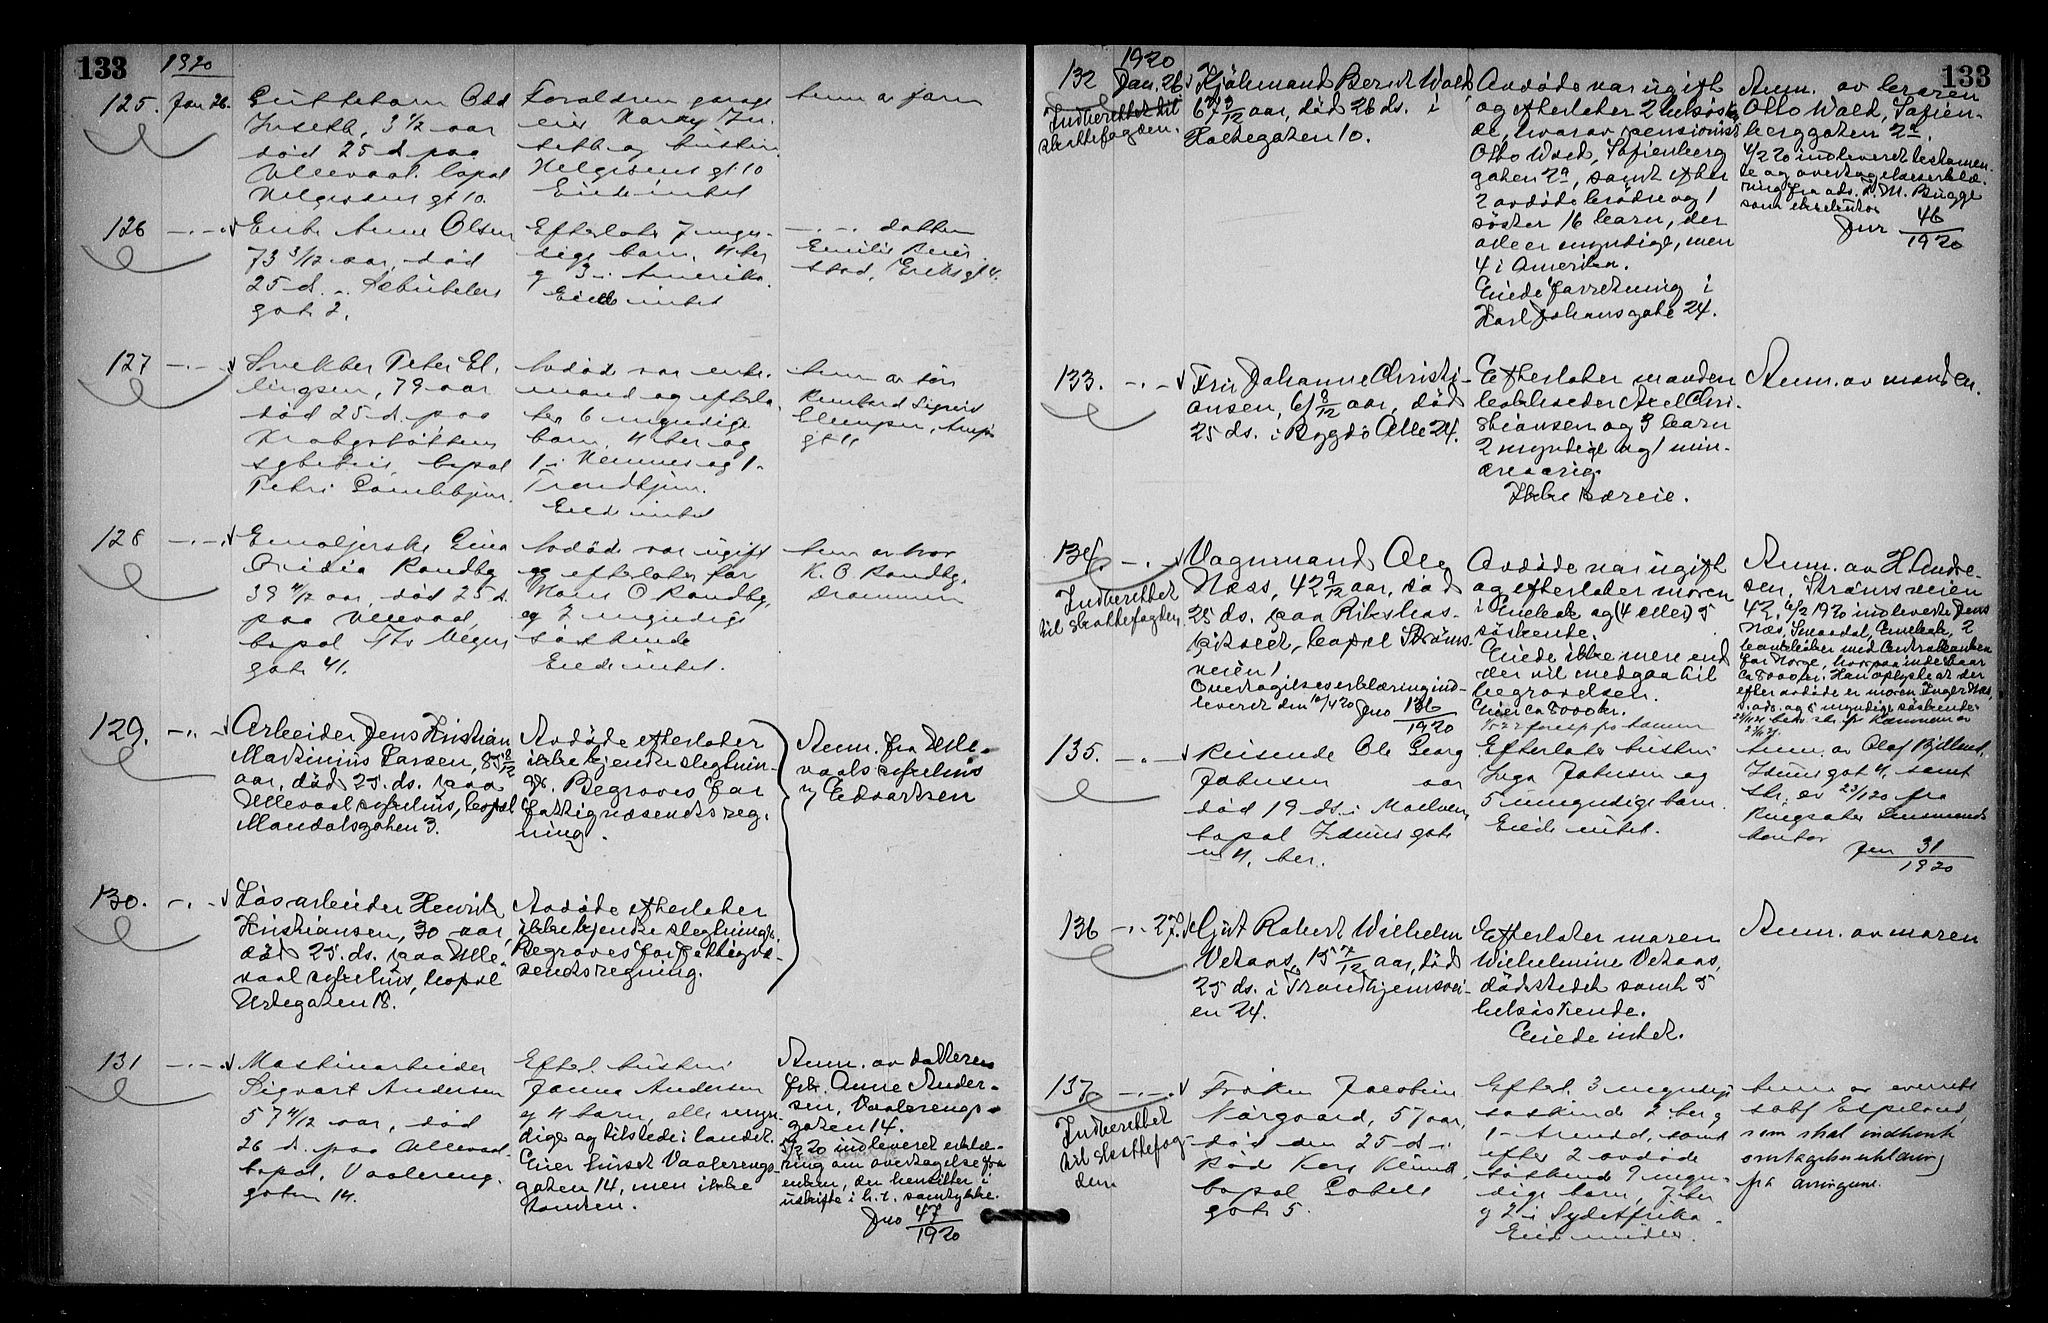 133
1920
125. Jan 26. Guttebarn Odd
3 1/2 aar
død 25 d. paa
Ullevaal. Bopæl
Helgesens gt 10.
Forældrene garage
eier Harry
og hustru
Helgesens gt 10
Eiede intet
Anm. av faren
126 Enke Anne Olsen
73 3/12 aar, død
25 d.
gate 2.
Efterlater 7 myn-
dige barn, 4 her
og 3 i Amerika.
Eiede intet
datteren
Emilie
stad, Eriks gt 4.
127 Snekker Peter El-
lingsen, 79 aar
død 25 d. paa
Krohgstøttens
sykehus, bopæl
Petri Gamlehjem.
Avdøde var enke-
mand og efterla-
ter 6 myndige
barn, 4 her og
1 i Hemnes og 1 i
Trondhjem.
Eiede intet
Anm. av søn
Reinhard Sigurd
Ellingsen,
gt 4
128 Emaljerske Gina
Randby
39 4/12 aar, død 25 d.
paa Ullevaal,
bopæl Thv. Meyers
gate 41.
Avdøde var ugift
og efterlater far
Hans O Randby,
og 7 myndige
søskende
Eiede intet.
Anm. av bror
K. O. Randby,
Drammen
129. Arbeider Jens Kristian
Martinius Larsen, 85 10/12
aar, død 25. ds. paa
Ullevaal sykehus, bopæl
Mandalsgaten 3.
Avdøde efterlater
ikke kjendte slegtnin-
ge. Begraves for
fattigvæsenets reg-
ning.
Anm. fra Ulle-
vaals sykehus
v/ Edvartsen
130. Løsarbeider Henrik
Kristiansen, 30 aar,
død 25. ds. paa Ulle-
vaal sykehus, bopæl
Urtegaten 18.
Avdøde efterlater
ikke kjendte slegtninge.
Begraves for fattigvæ-
senets regning.
131 Maskinarbeider
Sigvart Andersen
57 4/12 aar, død
26 d. paa Ullevaal
bopæl, Vaalereng-
gaten 14.
Efterl. hustru
Janna Andersen
og 4 barn, alle myn-
dige og tilstede i landet.
Eier huset Vaalerengs-
gaten 14, men ikke
tomten.
Anm. av datteren
frk. Anne Ander-
sen, Vaalerengs-
gaten 14.
5/2 20 indleveret erklæ-
ring om overtagelse fra
enken, der hensitter i
uskifte i h. t. samtykke.
Jno 47/1920
133
1920
132 Jan. 26. Kjøbmand Bernt Wold
67 9/12 aar, død 26 ds. i
Holtegaten 10.
Indberettet til
skattefogden.
Avdøde var ugift
og efterlater 2 helsøsken-
de, hvorav pensionist
Otto Wold, Sofienberg
gaten 2a, samt efter
2 avdøde brødre og 1
søster 16 barn, der
alle er myndige, men
4 i Amerika.
Eiede forretning i
Karl Johansgate 24.
Anm. av broren
Otto Wold, Sofien-
berggaten 2a.
4/2 20 indleveret testamen-
te og overtagelseserklæ-
ring fra adv. M. Bugge
som eksekutor
Jnr 46/1920
133. Fru Johanne Christi-
ansen, 61 8/12 aar, død
25 ds. i Bygdø Alle 24.
Efterlater manden
Axel Chri-
stiansen og 3 barn
2 myndige og 1 min-
dreaarig.
Ikke særeie.
Anm. av manden.
134. Vognmand Ole
Næss, 42 9/12 aar, død
25 ds. paa Rikshos-
pitalet, bopæl Strøms-
veien 1
Overtagelseserklæring ind-
leveret den 10/4 20 Jno 136/1920
Indberettet
til skattefogden.
Avdøde var ugift
og efterlater moren
i Enebak og (4 eller) 5
søskende.
Eiede ikke mere end
der vil medgaa til
begravelsen.
Eier ca 8000 kr.
Anm. av H. Andre-
sen, Strømsveien
42. 6/2 1920 indleverte Jens
Næs, Enebak, 2
bankbøker med Centralbanken
for Norge, hvorpaa indestaar
ca 8000 kr. Han oplyste at der
efter avdøde er moren Inger Næs,
s. adr. og 5 myndige søskende
135. Reisende Ole Georg
Johnsen aar
død 19 ds. i Moelven,
bopæl Iduns gate
4, her.
Efterlater hustru
Inga Johnsen og
5 umyndige barn.
Eiede intet.
Anm. av Olaf
Iduns gate 4, samt
skr. av 23/1 20 fra
Ringsaker Lensmands
kontor
Jnr 31/1920
136 27. Gjørt Robert Wilhelm
Vetaas, 15 7/12 aar, død
25 ds. i Trondhjemsvei-
en 24.
Efterlater moren
Wilhelmine Vetaas,
dødsstedet samt 5
helsøskende.
Eiede intet.
Anm. av moren
137 Frøken Jacobine
Nørgaard, 57 aar,
død den 25 d. i
Rød Kors Klinik
bopæl Gabels
gate 5.
Indberettet
til skattefog-
den
Efterl. 3 myndige
søskende 2 her og
1 i Arendal, samt
efter 2 avdøde
søskende 9 myn-
dige barn, 7 her
og 2 i Sydafrika.
Eiede midler.
Anm. av overrets
sakf Espeland,
som skal indhente
overtagelseserklæring
fra arvingene.